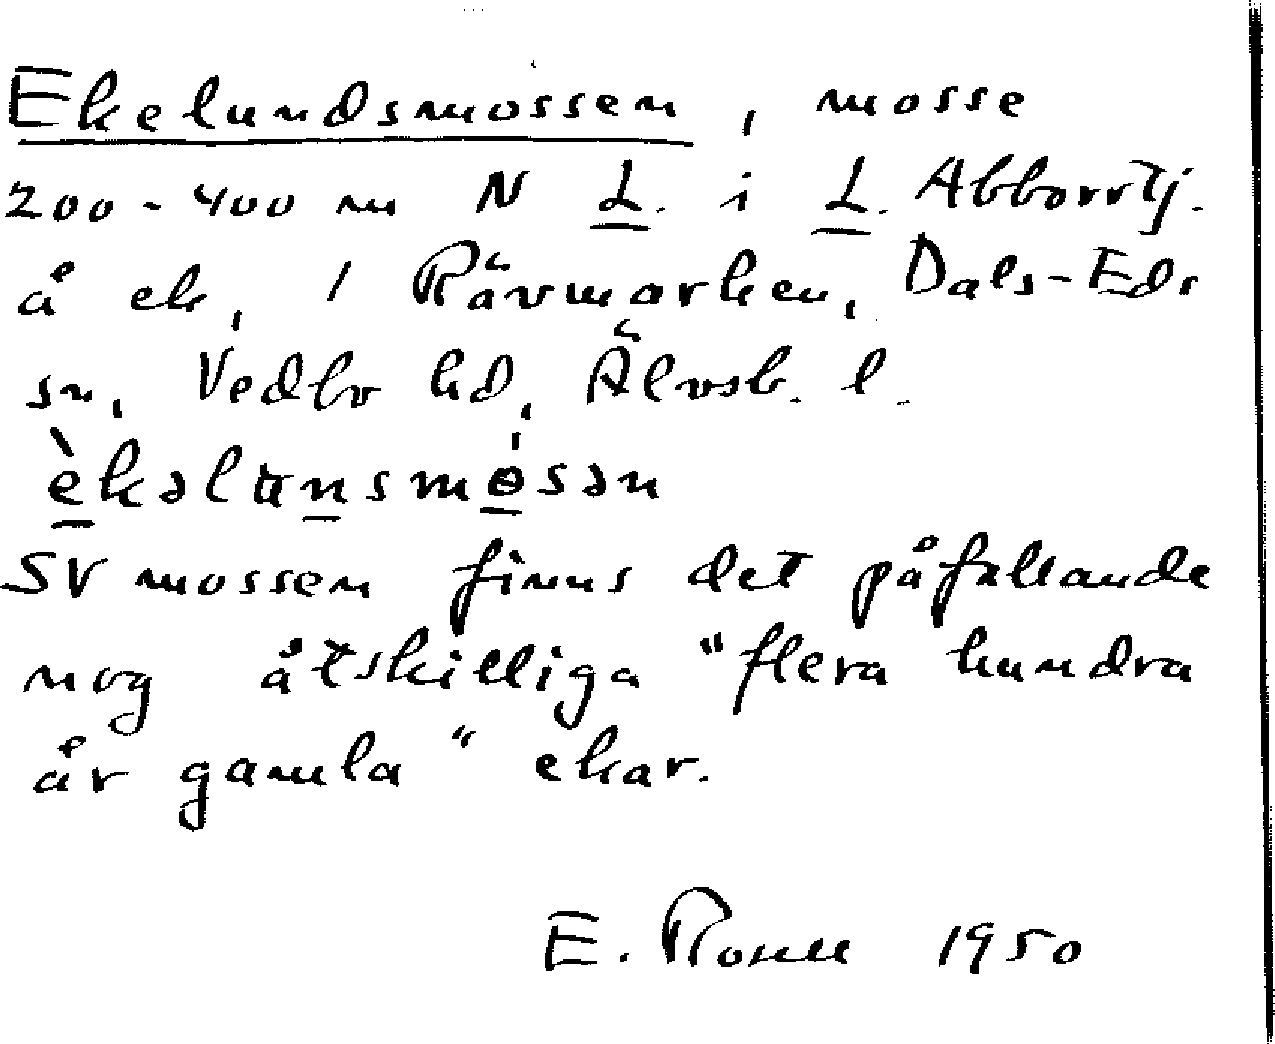 Ekelundsmossen, mosse
200-400 m N L. i L. Abborrtj.
å ek, 1 Rävmarken, Dals-Eds
sn, Vedbo hd, Älvsb. l.
èkəlunsmòsən
SV mossen finns det påfallande
nog åtskilliga "flera hundra
år gamla" ekar.
E. 1950